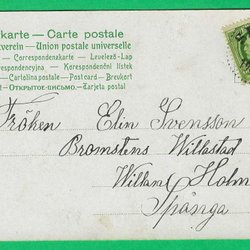 karte — Carte postale
verein — Union postale universelle
Correspondenzkarte — Levelező-Lap
respondencyjna — Korespondenční lístek
Cartolina postale — Postcard — Brevkort
ОТКРЫТОЕ ПИСЬМО. — Tarjeta postal
Fröken Elin Svensson
Bromstens Willastad
Willan Holm
Spånga